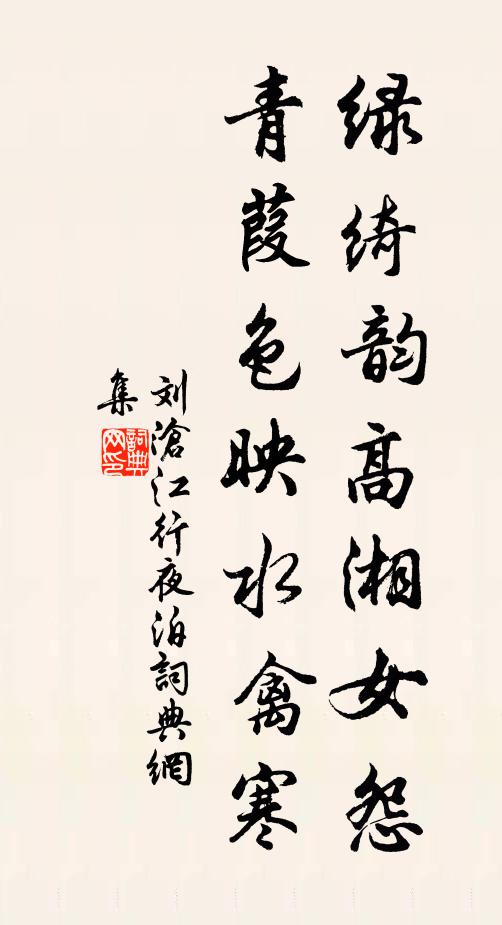 绿绮韵高湘女怨
青葭色映水禽寒
刘滄江行夜泊詞典網
集
詞典网印